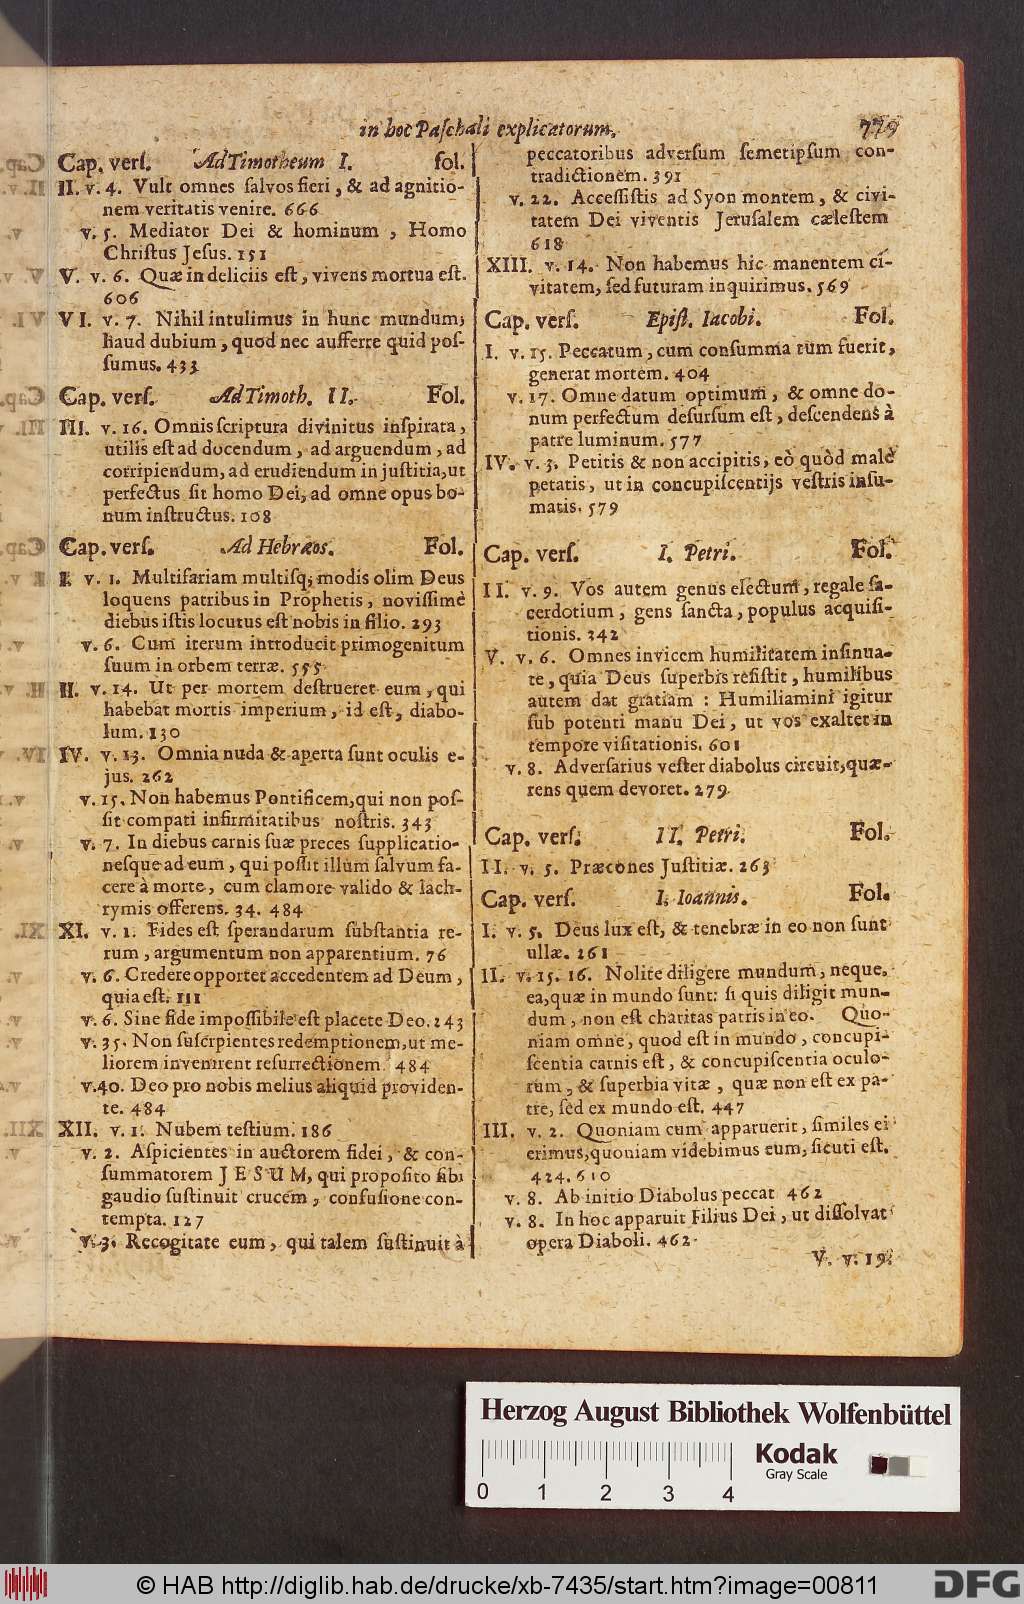 in hoc Paſchali explicatorum.
779
Cap. verſ. Ad Timotheum I. fol.
II. v. 4. Vult omnes ſalvos fieri, & ad agnitio-
nem veritatis venire. 666
v. 5. Mediator Dei & hominum, Homo
Chriſtus Jeſus. 151
V. v. 6. Quæ in deliciis eſt, vivens mortua eſt.
606
VI. v. 7. Nihil intulimus in hunc mundum;
haud dubium, quod nec aufferre quid poſ-
ſumus. 433
Cap. verſ. Ad Timoth. II. Fol.
III. v. 16. Omnis ſcriptura divinitus inſpirata,
utilis eſt ad docendum, ad arguendum, ad
corripiendum, ad erudiendum in juſtitia, ut
perfectus ſit homo Dei, ad omne opus bo-
num inſtructus. 108
Cap. verſ. Ad Hebræos. Fol.
I. v. 1. Multifariam multisq; modis olim Deus
loquens patribus in Prophetis, noviſſimè
diebus iſtis locutus eſt nobis in filio. 293
v. 6. Cum iterum introducit primogenitum
ſuum in orbem terræ. 555
II. v. 14. Ut per mortem deſtrueret eum, qui
habebat mortis imperium, id eſt, diabo-
lum. 130
IV. v. 13. Omnia nuda & aperta ſunt oculis e-
jus. 262
v. 15. Non habemus Pontificem, qui non poſ-
ſit compati infirmitatibus noſtris. 343
v. 7. In diebus carnis ſuæ preces ſupplicatio-
neſque ad eum, qui poſſit illum ſalvum fa-
cere à morte, cum clamore valido & lachr-
rymis offerens. 34. 484
XI. v. 1. Fides eſt ſperandarum ſubſtantia re-
rum, argumentum non apparentium. 76
v. 6. Credere opportet accedentem ad Deum,
quia eſt. 111
v. 6. Sine fide impoſſibile eſt placere Deo. 243
v. 35. Non ſuſcipientes redemptionem, ut me-
liorem invenirent reſurrectionem. 484
v. 40. Deo pro nobis melius aliquid providen-
te. 484
XII. v. 1. Nubem teſtium. 186
v. 2. Aſpicientes in auctorem fidei, & con-
ſummatorem JESUM, qui propoſito ſibi
gaudio ſuſtinuit crucem, confuſione con-
tempta. 127
v. 3. Recogitate eum, qui talem ſuſtinuit à
peccatoribus adverſum ſemetipſum con-
tradictionem. 391
v. 22. Acceſſiſtis ad Syon montem, & civi-
tatem Dei viventis Jeruſalem cæleſtem
618
XIII. v. 14. Non habemus hic manentem ci-
vitatem, ſed futuram inquirimus. 569
Cap. verſ. Epiſt. Iacobi. Fol.
I. v. 15. Peccatum, cum conſummatum fuerit,
generat mortem. 404
v. 17. Omne datum optimum, & omne do-
num perfectum deſurſum eſt, deſcendens à
patre luminum. 577
IV. v. 3. Petitis & non accipitis, eò quòd malè
petatis, ut in concupiſcentijs veſtris inſu-
matis. 579
Cap. verſ. I. Petri. Fol.
II. v. 9. Vos autem genus electum, regale ſa-
cerdotium, gens ſancta, populus acquiſi-
tionis. 342
V. v. 6. Omnes invicem humilitatem inſinua-
te, quia Deus ſuperbis reſiſtit, humilibus
autem dat gratiam: Humiliamini igitur
ſub potenti manu Dei, ut vos exaltet in
tempore viſitationis. 601
v. 8. Adverſarius veſter diabolus circuit, quæ-
rens quem devoret. 279
Cap. verſ. II. Petri. Fol.
II. v. 5. Præcones Juſtitiæ. 263
Cap. verſ. I. Ioannis. Fol.
I. v. 5. Deus lux eſt, & tenebræ in eo non ſunt
ullæ. 261
II. v. 15. 16. Nolite diligere mundum, neque
ea, quæ in mundo ſunt: ſi quis diligit mun-
dum, non eſt charitas patris in eo. Quo-
niam omne, quod eſt in mundo, concupi-
ſcentia carnis eſt, & concupiſcentia oculo-
rum, & ſuperbia vitæ, quæ non eſt ex pa-
tre, ſed ex mundo eſt. 447
III. v. 2. Quoniam cum apparuerit, ſimiles ei
erimus, quoniam videbimus eum, ſicuti eſt.
424. 610
v. 8. Ab initio Diabolus peccat 462
v. 8. In hoc apparuit Filius Dei, ut diſſolvat
opera Diaboli. 462
V. v. 19.
Herzog August Bibliothek Wolfenbüttel
Kodak
Gray Scale
0 1 2 3 4
© HAB http://diglib.hab.de/drucke/xb-7435/start.htm?image=00811
DFG